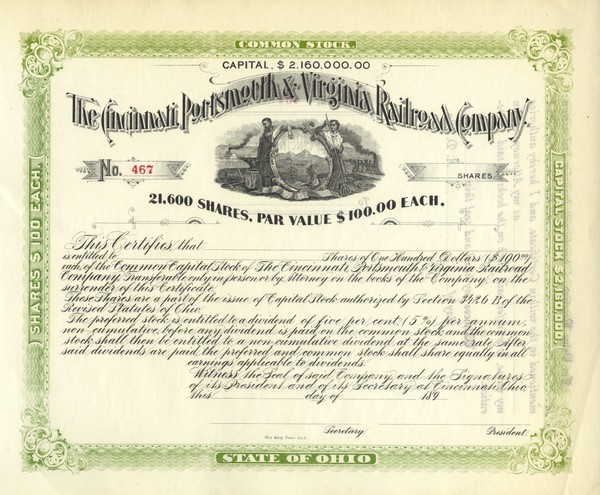 COMMON STOCK.
CAPITAL, $ 2,160,000.00
The Cincinnati, Portsmouth & Virginia Railroad Company.
No. 467
SHARES.
21,600 SHARES, PAR VALUE $100.00 EACH.
SHARES $ 100 EACH.
CAPITAL STOCK $2,160,000.
This Certifies that
is entitled to Shares of One Hundred Dollars ($100.00)
each, of the Common Capital Stock of The Cincinnati, Portsmouth & Virginia Railroad
Company, Transferable only in person or by Attorney on the books of the Company, on the
surrender of this Certificate.
Those Shares are a part of the issue of Capital Stock authorized by Section 3426 B of the
Revised Statutes of Ohio.
The preferred stock is entitled to a dividend of five per cent. (5%) per annum,
non-cumulative, before any dividend is paid on the common stock, and the common
stock shall then be entitled to a non-cumulative dividend at the same rate. After
said dividends are paid, the preferred and common stock shall share equally in all
earnings applicable to dividends.
Witness, the Seal of said Company, and the Signatures
of its President and of its Secretary at Cincinnati, Ohio
this day of 189
Secretary. President.
STATE OF OHIO